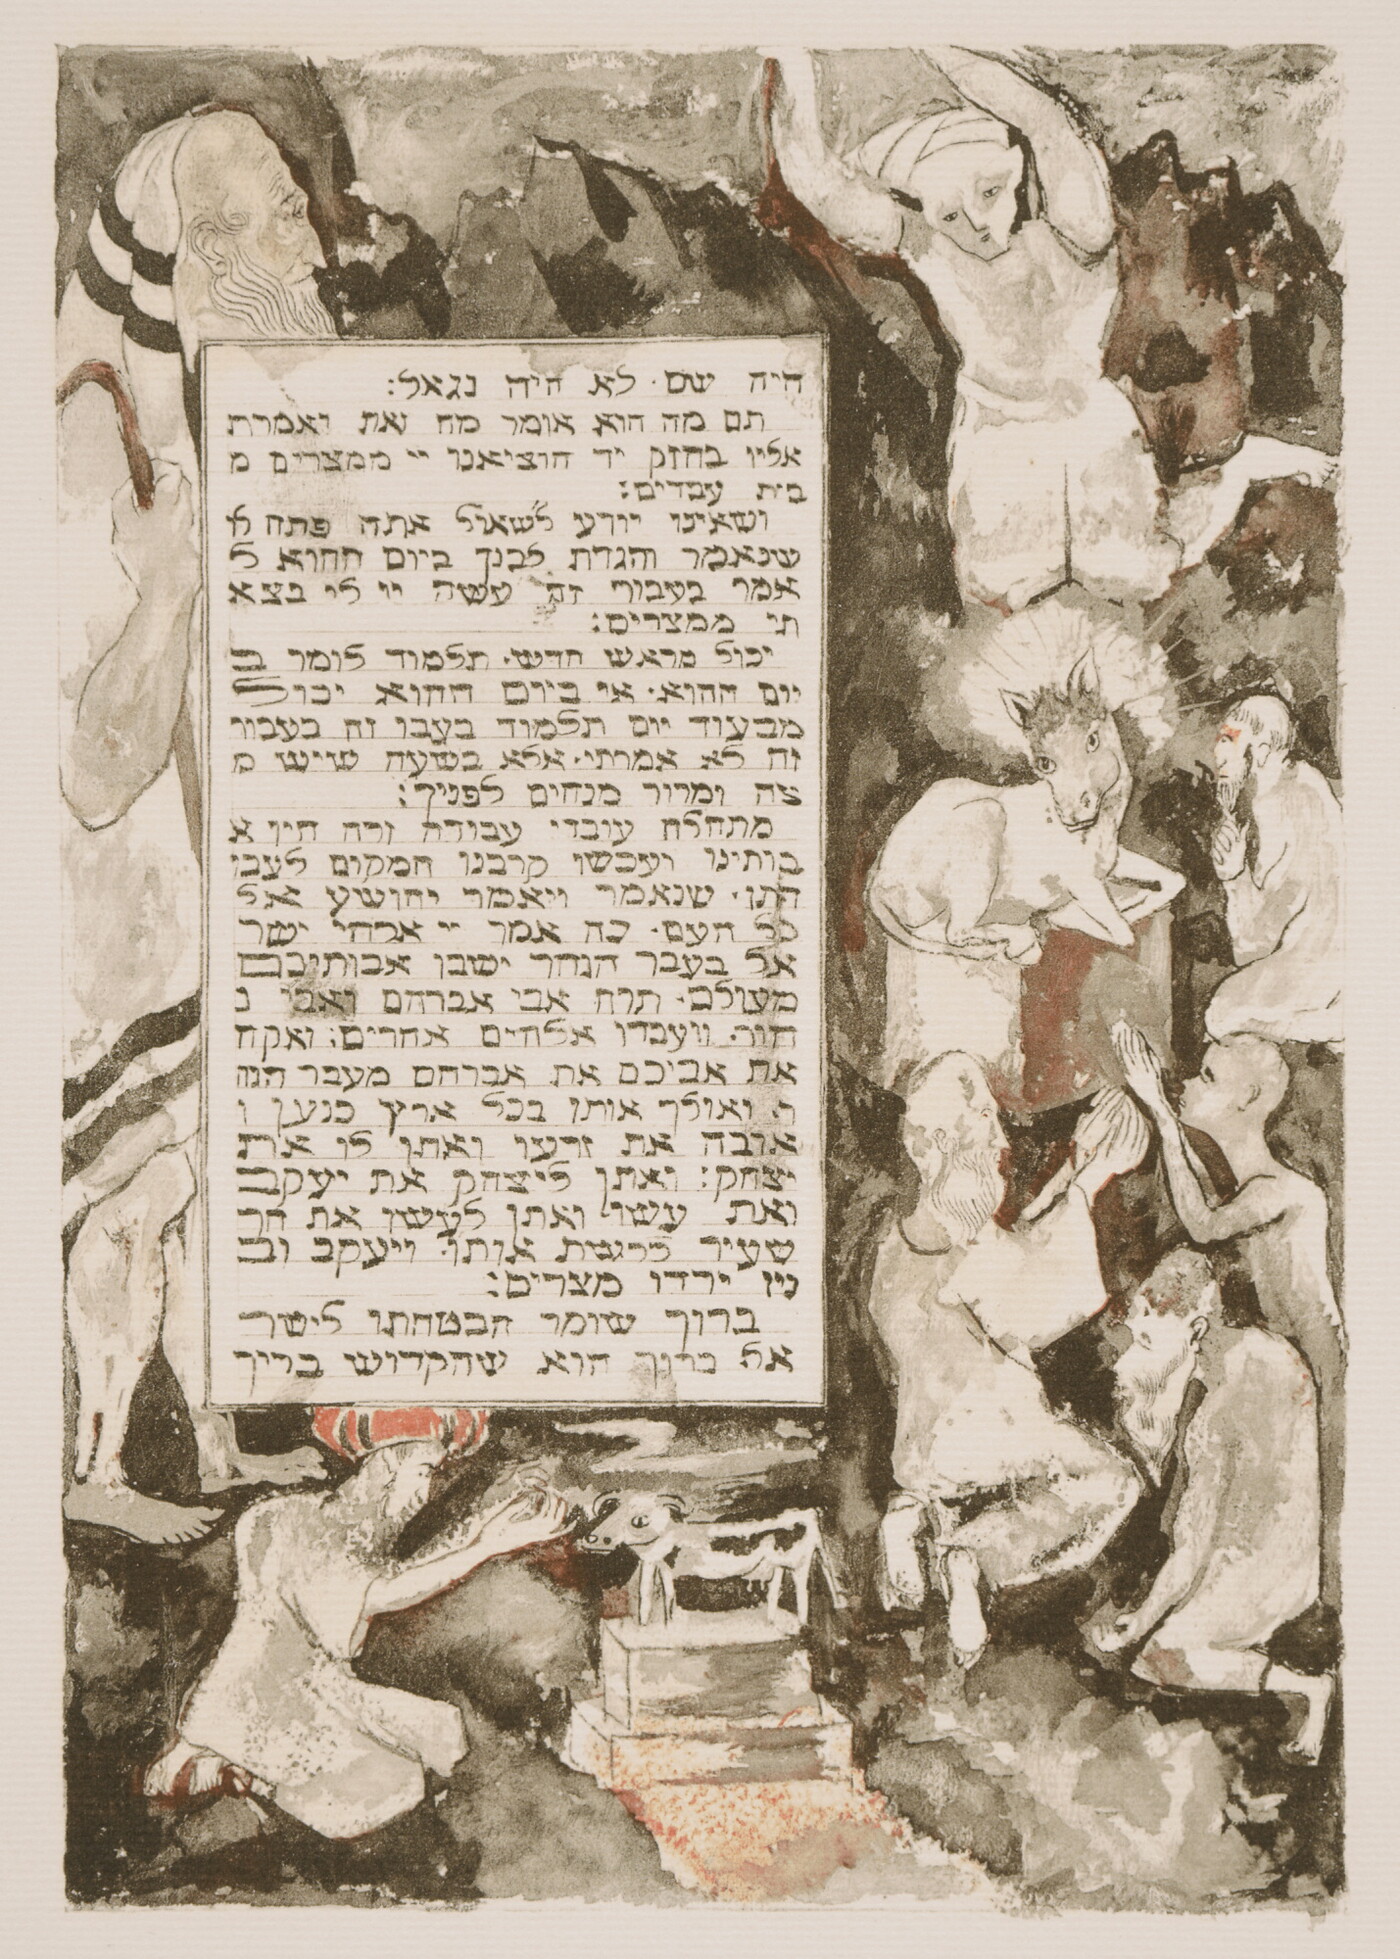 היה שם· לא היה נגאל:
תם מה הוא אומר מה זאת ואמרת
אליו בחזק יד הוציאנו יי ממצרים מ
בית עבדים:
ושאינו יודע לשאול אתה פתח ל
שנאמר והגדת לבנך ביום ההוא ל
אמר בעבור זה עשה יי לי בצא
תי ממצרים:
יכול מראש חדש· תלמוד לומר ב
יום ההוא· אי ביום ההוא יכול
מבעוד יום תלמוד בעבו זה בעבור
זה לא אמרתי· אלא בשעה שיש מ
צה ומרור מנחים לפניך:
מתחלה עובדי עבודה זרה היו א
בותינו ועכשו קרבנו המקום לעבו
דתו· שנאמר ויאמר יהושע אל
כל העם· כה אמר יי אלהי ישר
אל בעבר הנהר ישבו אבותיכם
מעולם· תרח אבי אברהם ואבי נ
חור· ויעבדו אלהים אחרים: ואקח
את אביכם את אברהם מעבר הנה
ר· ואולך אותו בכל ארץ כנען ו
ארבה את זרעו ואתן לו את
יצחק: ואתן ליצחק את יעקב
ואת עשו· ואתן לעשו את הר
שעיר לרשת אותו· ויעקב וב
ניו ירדו מצרים:
ברוך שומר הבטחתו לישר
אל ברוך הוא שהקדוש בריך